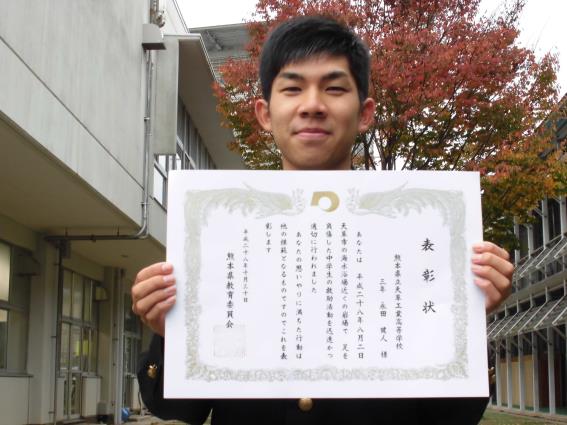 表彰状
熊本県立天草工業高等学校
三年 永田 健人 様
あなたは 平成二十八年八月二日
天草市の海水浴場近くの岩場で 足を
負傷した中学生の救助活動を迅速かつ
適切に行われました
あなたの思いやりに満ちた行動は
他の模範となるものですのでこれを表
彰します
平成二十八年十月三十日
熊本県教育委員会